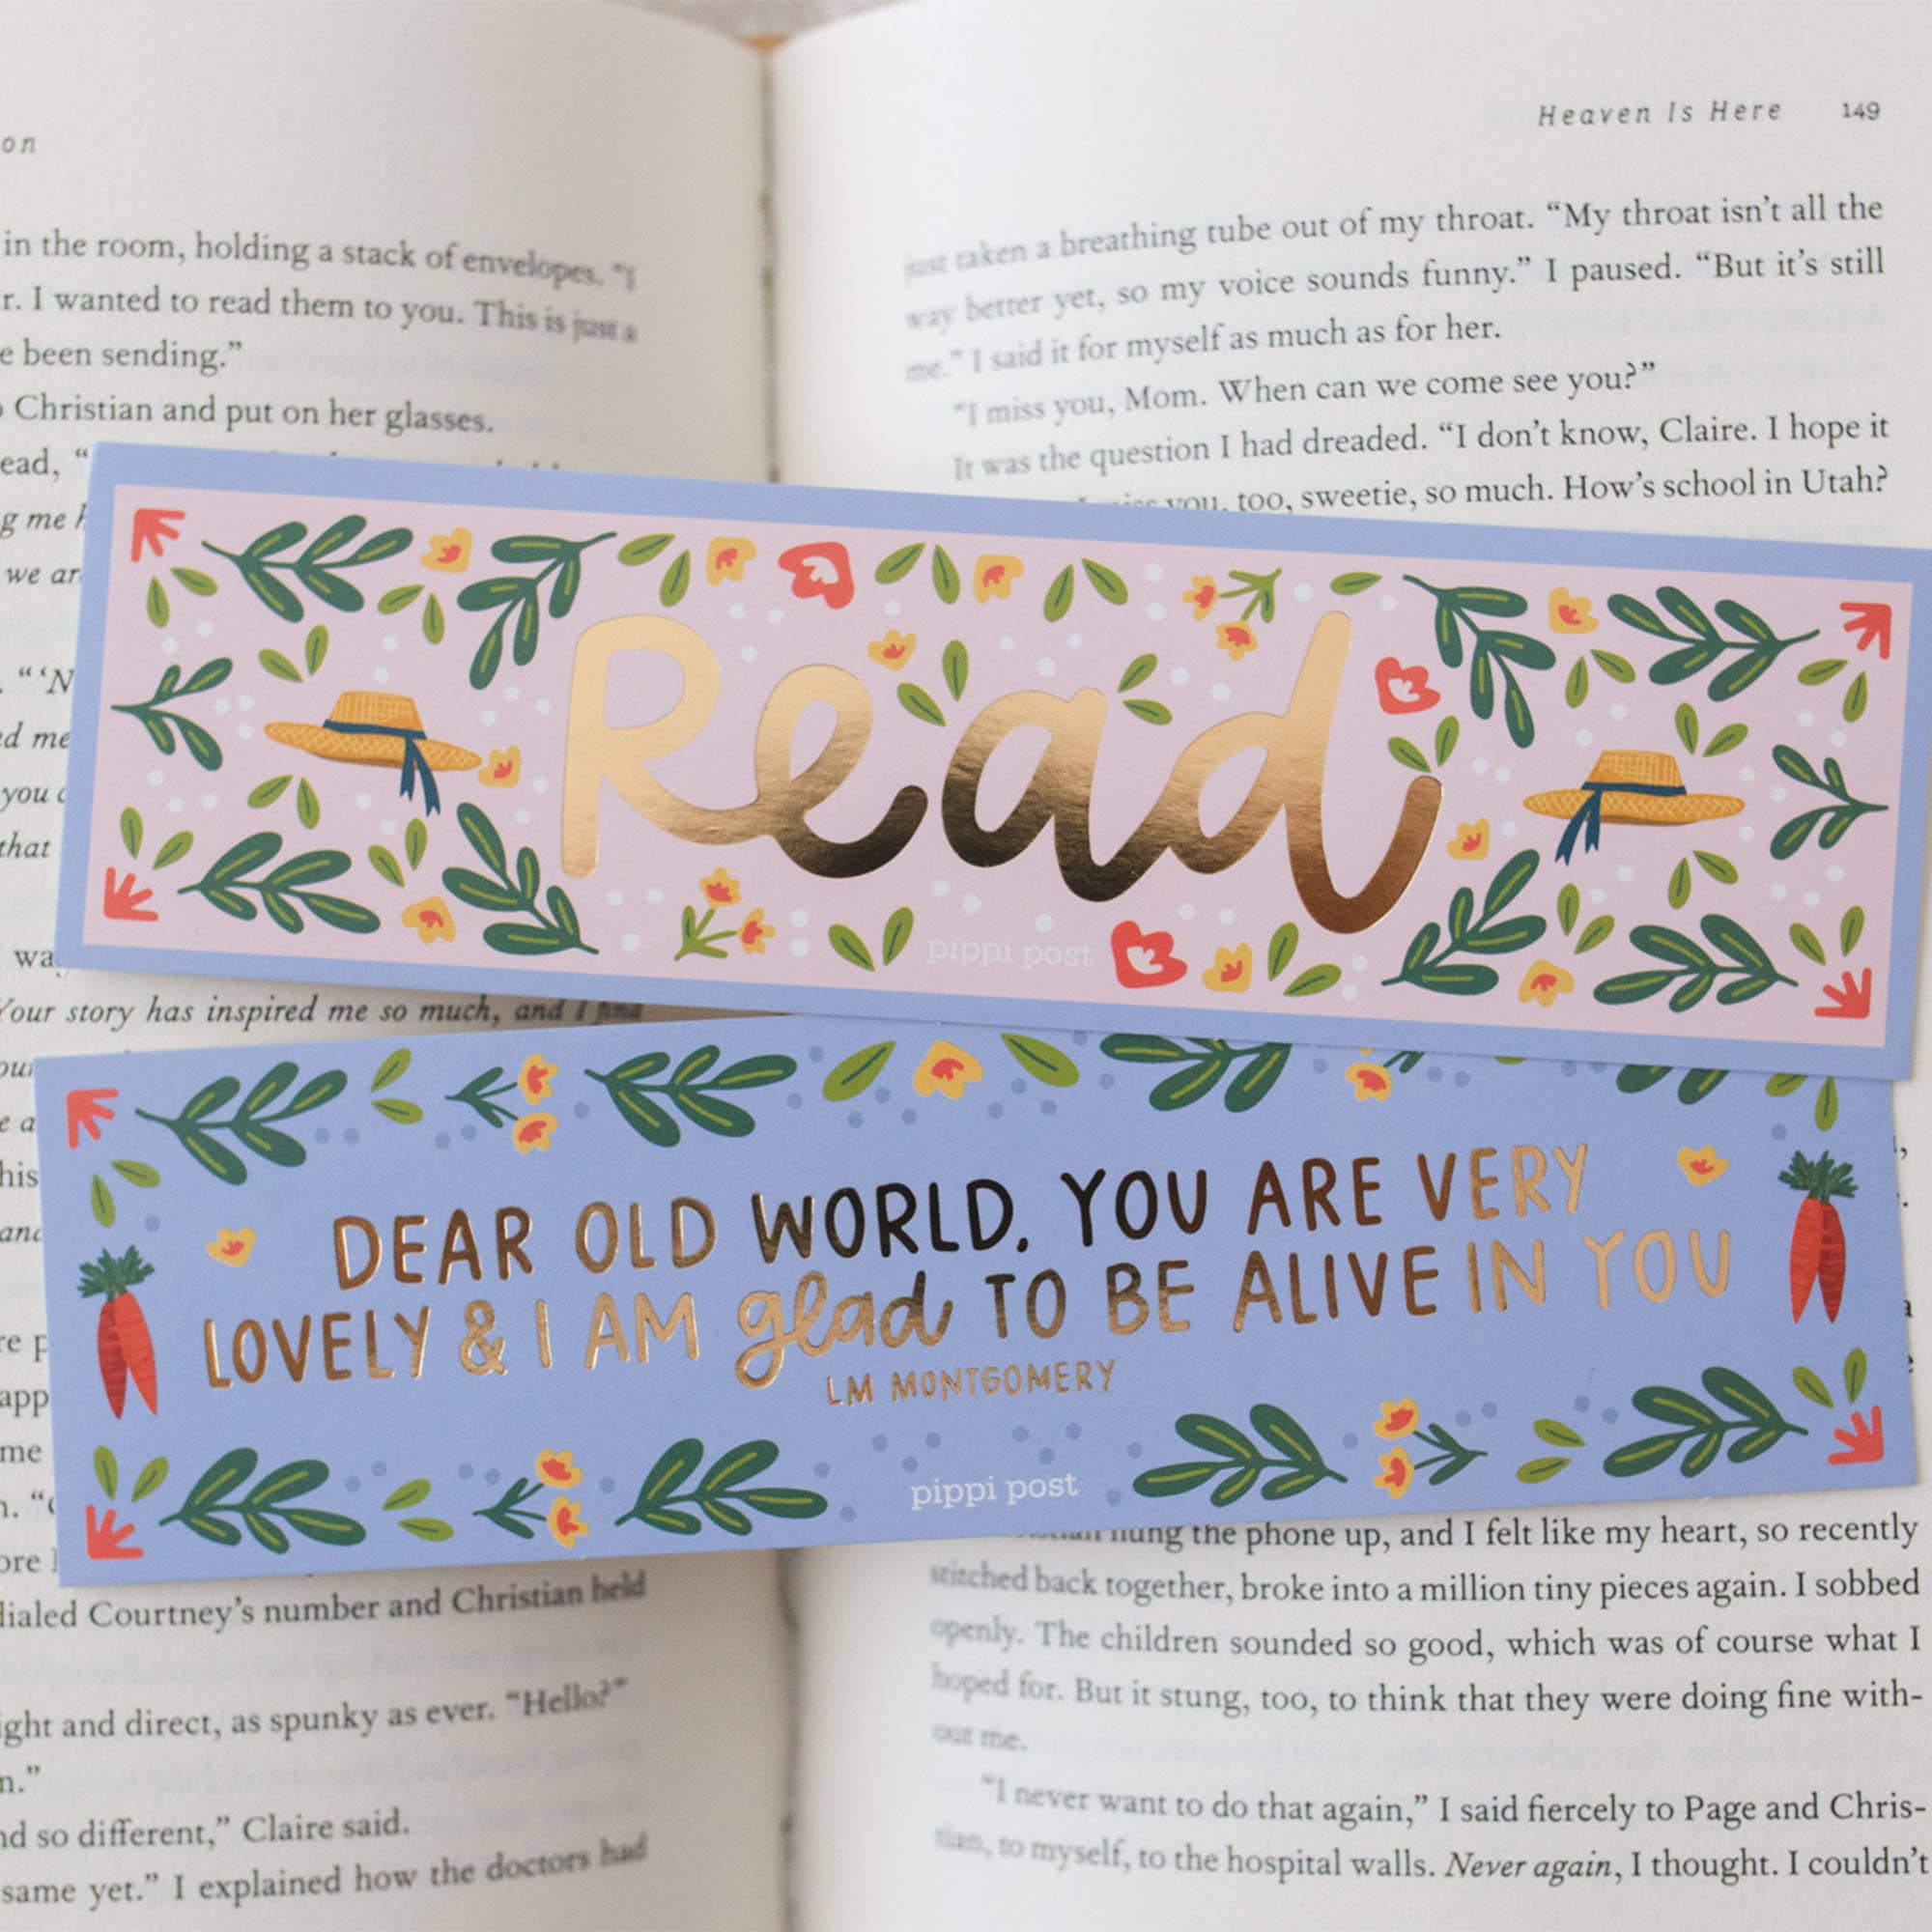 on
in the room, holding a stack of envelopes. "I
r. I wanted to read them to you. This is just a
e been sending."
Christian and put on her glasses.
ead, "
g me h
we ar
. "'N
d me
you
that
wa
Your story has inspired me so much, and I find
our
e a
his
and
re p
app
me
n. "
ore
dialed Courtney's number and Christian held
ight and direct, as spunky as ever. "Hello?"
n."
nd so different," Claire said.
same yet." I explained how the doctors had
Heaven Is Here 149
just taken a breathing tube out of my throat. "My throat isn't all the
way better yet, so my voice sounds funny." I paused. "But it's still
me." I said it for myself as much as for her.
"I miss you, Mom. When can we come see you?"
It was the question I had dreaded. "I don't know, Claire. I hope it
I miss you, too, sweetie, so much. How's school in Utah?
Read
pippi post
DEAR OLD WORLD, YOU ARE VERY
LOVELY & I AM glad TO BE ALIVE IN YOU
LM MONTGOMERY
pippi post
hung the phone up, and I felt like my heart, so recently
stitched back together, broke into a million tiny pieces again. I sobbed
openly. The children sounded so good, which was of course what I
hoped for. But it stung, too, to think that they were doing fine with-
out me.
"I never want to do that again," I said fiercely to Page and Chris-
tian, to myself, to the hospital walls. Never again, I thought. I couldn't